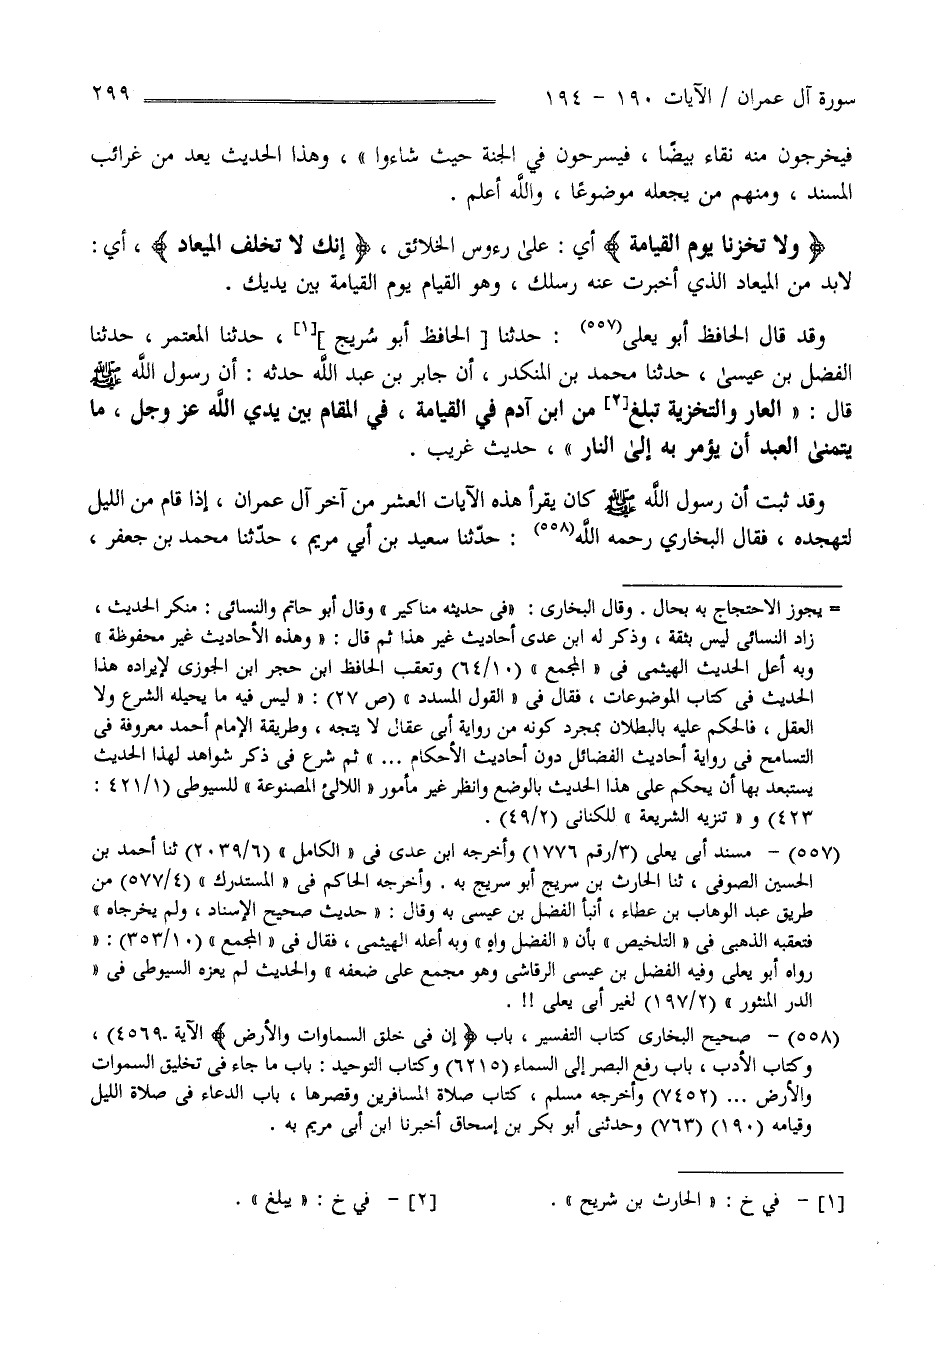 سورة آل عمران / الآيات ١٩٠ - ١٩٤ ٢٩٩
فيخرجون منه نقاء بيضًا ، فيسرحون في الجنة حيث شاءوا » ، وهذا الحديث يعد من غرائب
المسند ، ومنهم من يجعله موضوعًا ، واللَّه أعلم .
﴿ ولا تخزنا يوم القيامة ﴾ أي : علىٰ رءوس الخلائق ، ﴿ إنك لا تخلف الميعاد ﴾ ، أي :
لابد من الميعاد الذي أخبرت عنه رسلك ، وهو القيام يوم القيامة بين يديك .
وقد قال الحافظ أبو يعلى(٥٥٧) : حدثنا [ الحافظ أبو سُريج ][١] ، حدثنا المعتمر ، حدثنا
الفضل بن عيسىٰ ، حدثنا محمد بن المنكدر ، أن جابر بن عبد اللَّه حدثه : أن رسول اللَّه ﷺ
قال : « العار والتخزية تبلغ[٢] من ابن آدم في القيامة ، في المقام بين يدي اللَّه عز وجل ، ما
يتمنىٰ العبد أن يؤمر به إلىٰ النار » ، حديث غريب .
وقد ثبت أن رسول اللَّه ﷺ كان يقرأ هذه الآيات العشر من آخر آل عمران ، إذا قام من الليل
لتهجده ، فقال البخاري رحمه اللَّه(٥٥٨) : حدّثنا سعيد بن أبي مريم ، حدّثنا محمد بن جعفر ،
= يجوز الاحتجاج به بحال . وقال البخارى : «فى حديثه مناكير » وقال أبو حاتم والنسائى : منكر الحديث ،
زاد النسائى ليس بثقة ، وذكر له ابن عدى أحاديث غير هذا ثم قال : « وهذه الأحاديث غير محفوظة »
وبه أعل الحديث الهيثمى فى « المجمع » (٦٤/١٠) وتعقب الحافظ ابن حجر ابن الجوزى لإيراده هذا
الحديث فى كتاب الموضوعات ، فقال فى « القول المسدد » (ص ٢٧) : « ليس فيه ما يحيله الشرع ولا
العقل ، فالحكم عليه بالبطلان بمجرد كونه من رواية أبى عقال لا يتجه ، وطريقة الإمام أحمد معروفة فى
التسامح فى رواية أحاديث الفضائل دون أحاديث الأحكام ... » ثم شرع فى ذكر شواهد لهذا الحديث
يستبعد بها أن يحكم على هذا الحديث بالوضع وانظر غير مأمور « اللالئ المصنوعة » للسيوطى (٤٢١/١ :
٤٢٣) و « تنزيه الشريعة » للكنانى (٤٩/٢) .
(٥٥٧) - مسند أبى يعلى (٣/رقم ١٧٧٦) وأخرجه ابن عدى فى « الكامل » (٢٠٣٩/٦) ثنا أحمد بن
الحسين الصوفى ، ثنا الحارث بن سريج أبو سريج به . وأخرجه الحاكم فى « المستدرك » (٥٧٧/٤) من
طريق عبد الوهاب بن عطاء ، أنبأ الفضل بن عيسى به وقال : « حديث صحيح الإسناد ، ولم يخرجاه »
فتعقبه الذهبى فى « التلخيص » بأن « الفضل واهٍ » وبه أعله الهيثمى ، فقال فى « المجمع » (٣٥٣/١٠) : «
رواه أبو يعلى وفيه الفضل بن عيسى الرقاشى وهو مجمع على ضعفه » والحديث لم يعزه السيوطى فى «
الدر المنثور » (١٩٧/٢) لغير أبى يعلى !! .
(٥٥٨) - صحيح البخارى كتاب التفسير ، باب ﴿ إن فى خلق السماوات والأرض ﴾ الآية -٤٥٦٩) ،
وكتاب الأدب ، باب رفع البصر إلى السماء (٦٢١٥) وكتاب التوحيد : باب ما جاء فى تخليق السموات
والأرض ... (٧٤٥٢) وأخرجه مسلم ، كتاب صلاة المسافرين وقصرها ، باب الدعاء فى صلاة الليل
وقيامه (١٩٠) (٧٦٣) وحدثنى أبو بكر بن إسحاق أخبرنا ابن أبى مريم به .
[١] - في خ : « الحارث بن شريح » . [٢] - في خ : « يبلغ » .